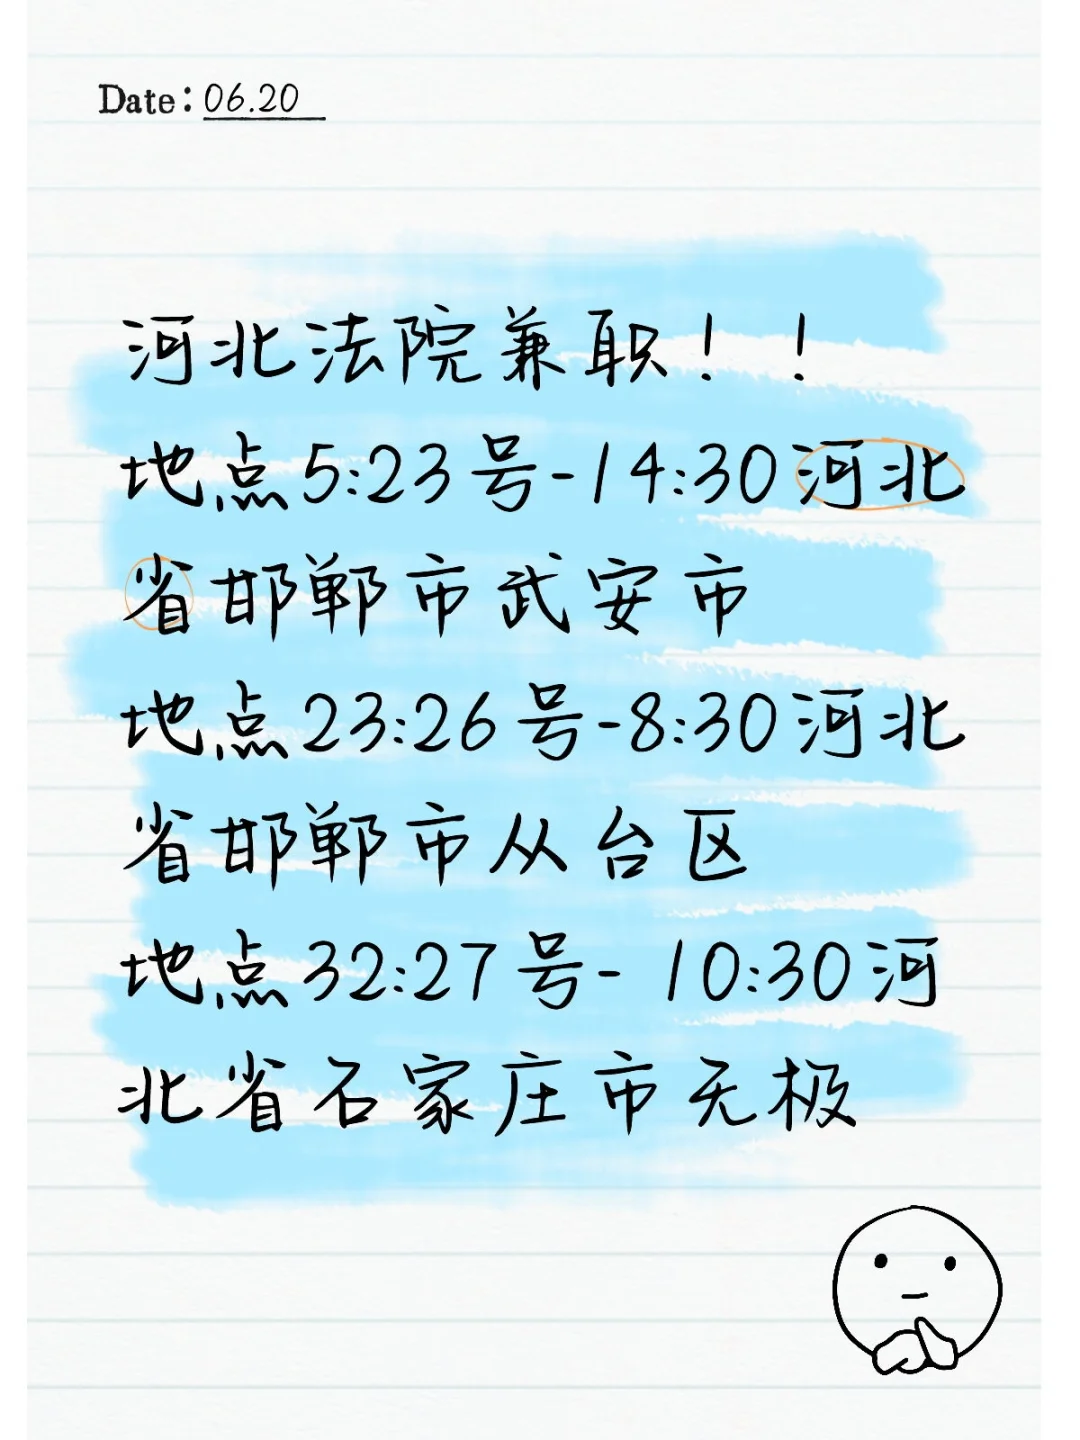 Date: 06.20
河北法院兼职！！
地点5:23号-14:30河北
省邯郸市武安市
地点23:26号-8:30河北
省邯郸市从台区
地点32:27号- 10:30河
北省石家庄市无极